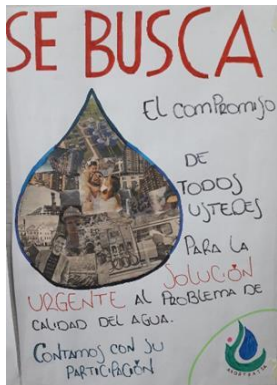 SE BUSCA
El COMPROMISO
DE
TODOS
USTEDES
PARA LA
SOLUCIÓN
URGENTE AL PROBLEMA DE
CALIDAD DEL AGUA.
CONTAMOS CON SU
PARTICIPACIÓN